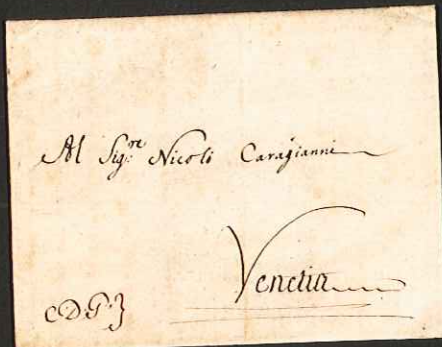 Al Sig:re Nicolò Caragianni
Venetia
CDG